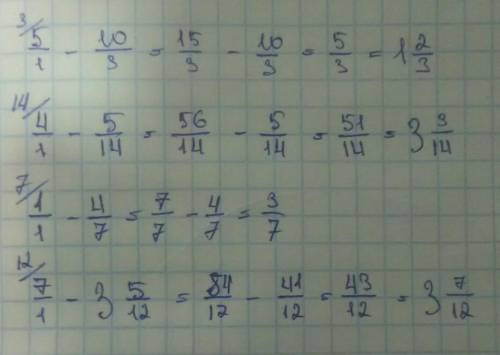 3/ 5/1 - 10/3 = 15/3 - 10/3 = 5/3 = 1 2/3
14/ 4/1 - 5/14 = 56/14 - 5/14 = 51/14 = 3 9/14
7/ 1/1 - 4/7 = 7/7 - 4/7 = 3/7
12/ 7/1 - 3 5/12 = 84/12 - 41/12 = 43/12 = 3 7/12